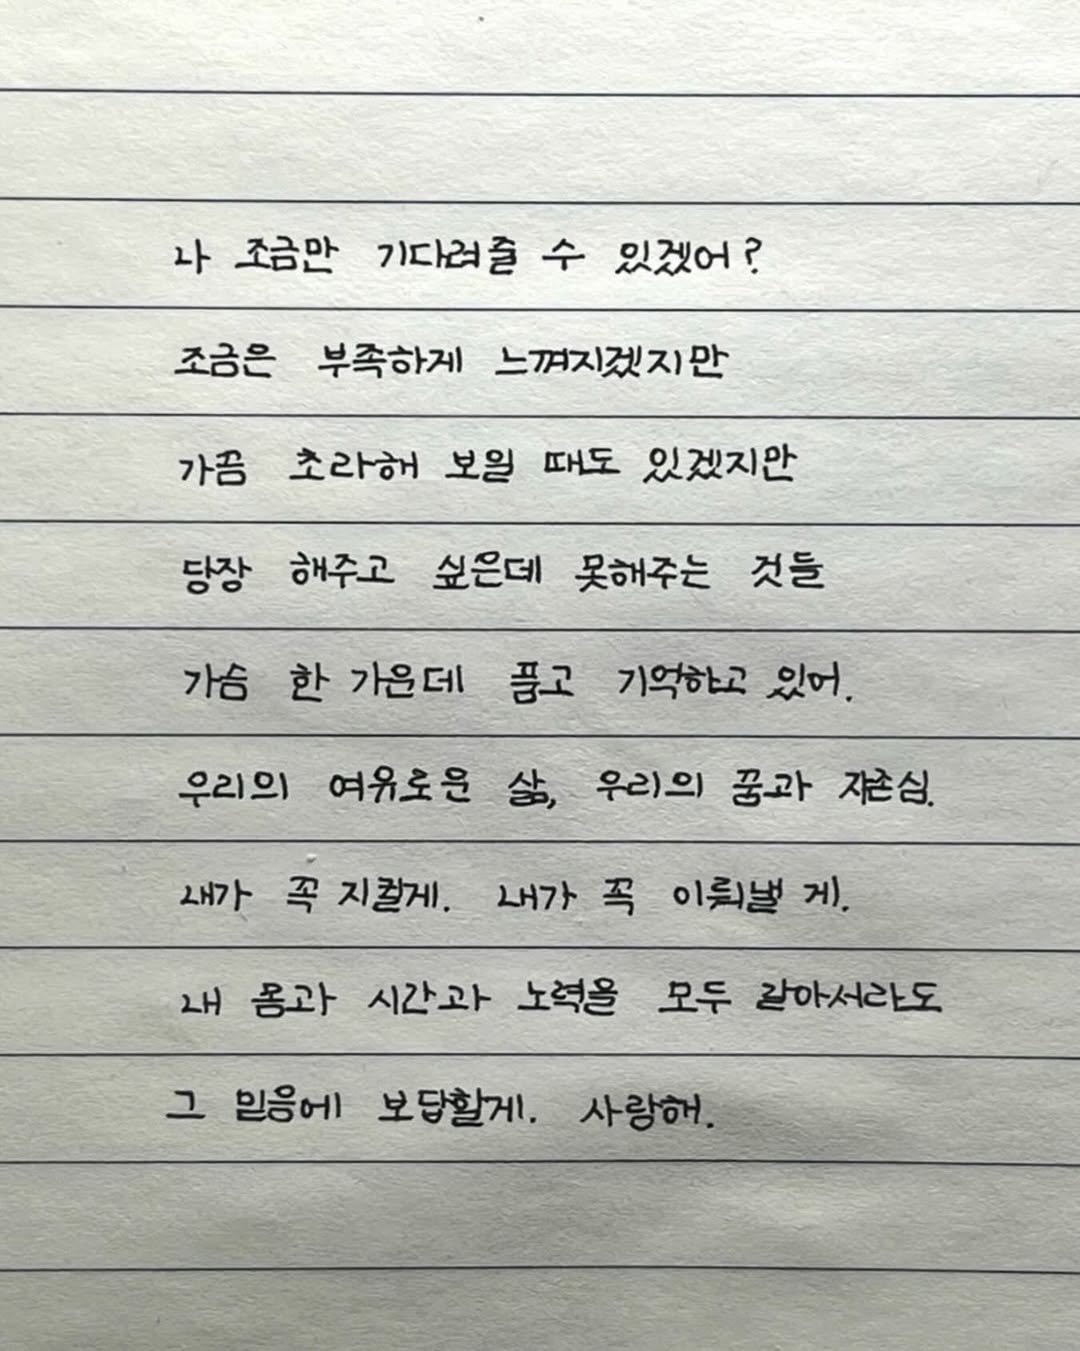 나 조금만 기다려줄 수 있겠어?
조금은 부족하게 느껴지겠지만
가끔 초라해 보일 때도 있겠지만
당장 해주고 싶은데 못해주는 것들
가슴 한 가운데 품고 기억하고 있어.
우리의 여유로운 삶, 우리의 꿈과 자존심.
내가 꼭 지킬게. 내가 꼭 이뤄낼 게.
내 몸과 시간과 노력을 모두 갈아서라도
그 믿음에 보답할게. 사랑해.